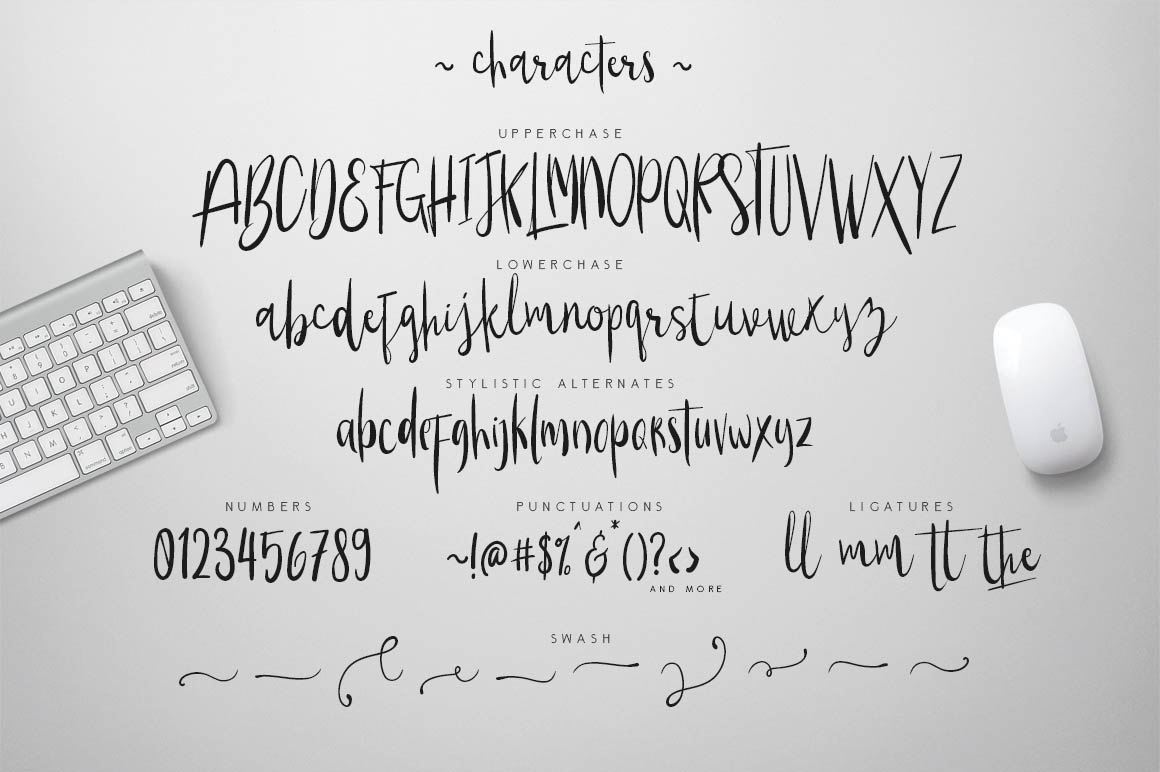 ~ characters ~
UPPERCHASE
ABCDEFGHIJKLMNOPQRSTUVWXYZ
LOWERCHASE
abcdefghijklmnopqrstuvwxyz
STYLISTIC ALTERNATES
abcdefghijklmnopqrstuvwxyz
NUMBERS
0123456789
PUNCTUATIONS
~!@#$%^&*()?<>
AND MORE
LIGATURES
ll mm tt the
SWASH